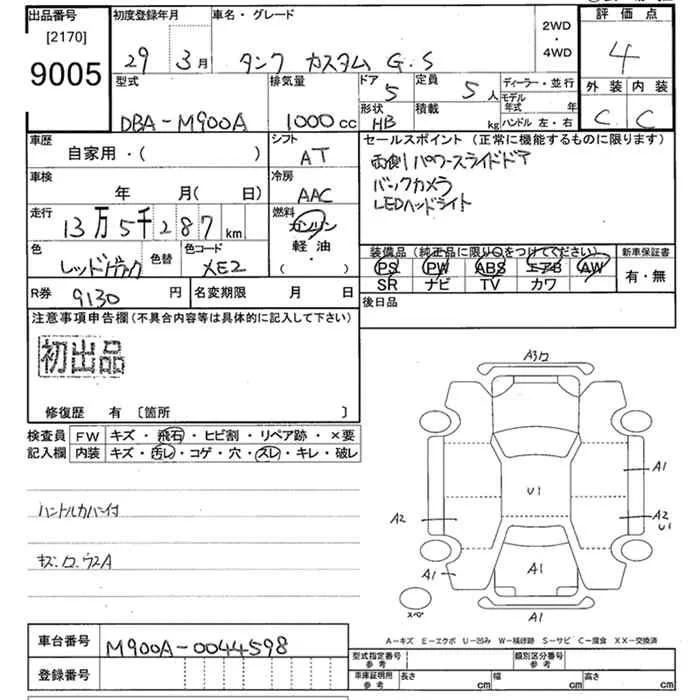 出品番号
[2170]
9005
初度登録年月
29 3月
車名・グレード
タンク カスタム G.S
2WD
・
4WD
評価点
4
外装 内装
C C
型式
DBA-M900A
排気量
1000cc
ドア 5
定員 5人
形状 HB
積載 kg
ディーラー・並行
モデル年式 年
ハンドル 左・右
車歴
自家用・( )
シフト
AT
車検
年 月( 日)
冷房
AAC
走行
13万5千287km
燃料
ガソリン
軽油・
( )
色
色替
色コード
XE2
R券 9130円
名変期限 月 日
セールスポイント(正常に機能するものに限ります)
両側パワースライドドア
バックカメラ
LEDヘッドライト
装備品(純正品に限り○をつけてください)
PS PW ABS エアB AW
SR ナビ TV カワ
新車保証書
有・無
後日品
注意事項申告欄(不具合内容等は具体的に記入して下さい)
初出品
修復歴 有〔箇所 〕
検査員 FW キズ・飛石・ヒビ割・リペア跡・×要
記入欄 内装 キズ・汚レ・コゲ・穴・スレ・キレ・破レ
ハンドルカバー付
A3
U1
A1
A2
A2
U1
A1
A1
スペア
A1
A-キズ E-エクボ U-凹み W-補修跡 S-サビ C-腐食 XX-交換済
車台番号 M900A-0044598
登録番号
型式指定番号
参考
類別区分番号
参考
車庫証明用
参考
長さ cm
幅 cm
高さ cm